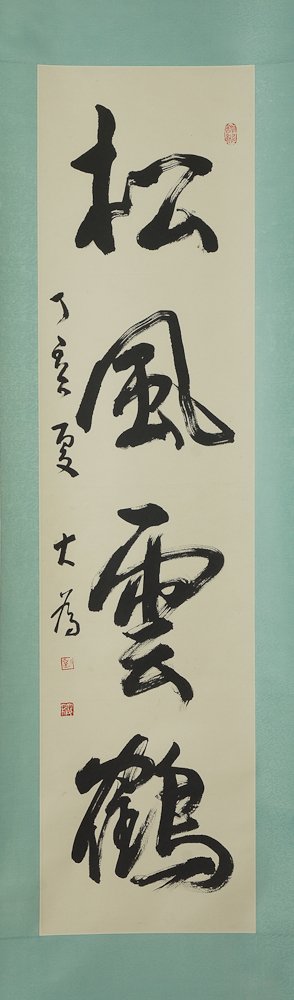 松風雲鶴
丁亥夏 大為